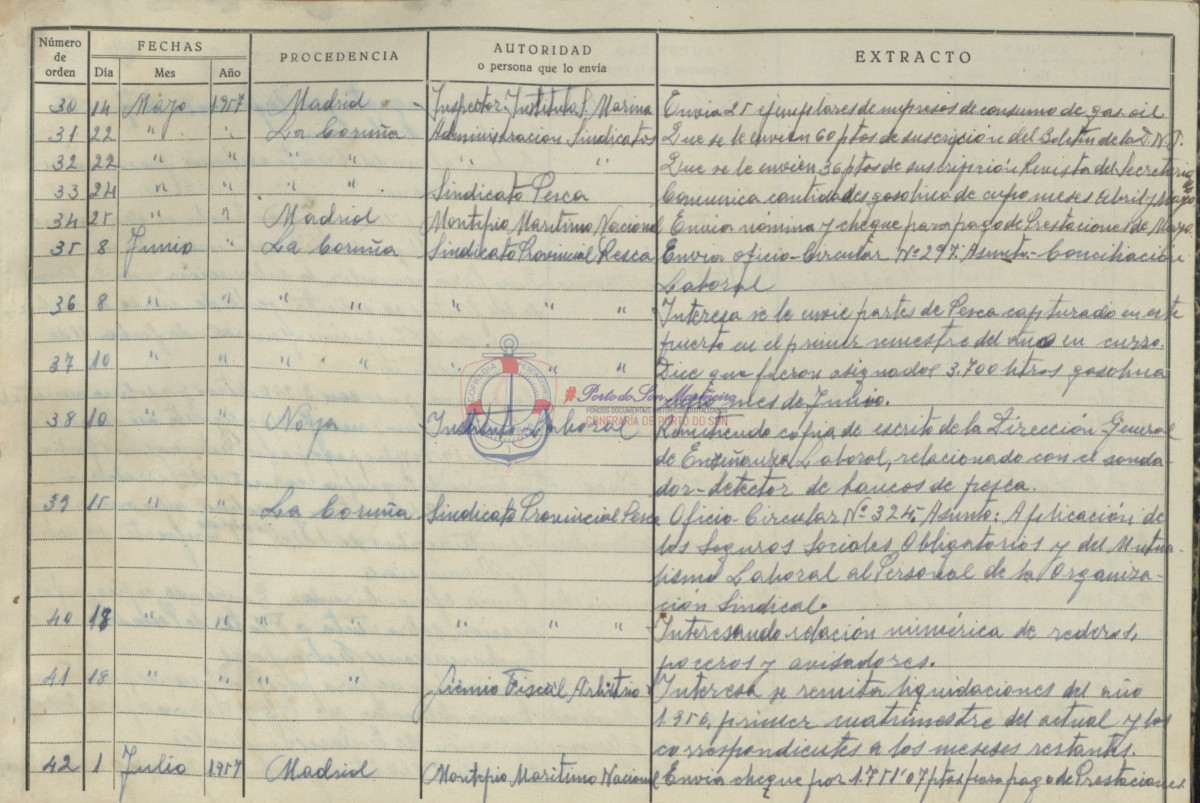 Número de orden FECHAS PROCEDENCIA AUTORIDAD o persona que lo envía EXTRACTO
Día Mes Año
30 14 Mayo 1957 Madrid Inspector Instituto S. Marina Envia 25 ejemplares de impresos de consumo de gas-oil
31 22 " " La Coruña Administracion Sindicatos Que se le envien 60 ptas de suscrición del Boletin de la D. N. S.
32 22 " " " " " " Que se le envien 36 ptas de suscripción Revista del Secretario
33 24 " " " " Sindicato Pesca Comunica cantidades gasolina de cupo meses Abril y Mayo
34 25 " " Madrid Montepio Maritimo Nacional Envian nómina y cheque para pago de Prestaciones de Mayo
35 8 Junio " La Coruña Sindicato Provincial Pesca Envian oficio-Circular Nº 297. Asunto.- Conciliación
Laboral
36 8 " " " " " " " Interesa se le envie partes de Pesca capturado en este
puerto en el primer semestre del año en curso.
37 10 " " " " " " " Dice que fueron asignados 3.700 litros gasolina
mes de Julio.
38 10 " " Noya Instituto Laboral Remitiendo copia de escrito de la Dirección General
de Enseñanza Laboral, relacionado con el sonda-
dor-detector de bancos de pesca.
39 15 " " La Coruña Sindicato Provincial Pesca Oficio-Circular Nº 324. Asunto: Aplicación de
los Seguros Sociales Obligatorios y del Mutua-
lismo Laboral al Personal de la Organiza-
ción Sindical.
40 18 " " " " " " " Interesando relación numérica de rederos,
poceros y avisadores.
41 18 " " " " Gremio Fiscal, Arbitrio Interesa se remita liquidaciones del año
1956, primer cuatrimestre del actual y los
correspondientes a los meseses restantes.
42 1 Julio 1957 Madrid Montepio Maritimo Nacional Envia cheque por 1.751'07 ptas para pago de Prestaciones
COFRADIA
# Porto do Son Mariñeiro
FONDOS DOCUMENTAIS HISTÓRICOS DIXITALIZADOS
CONFRARÍA DE PORTO DO SON